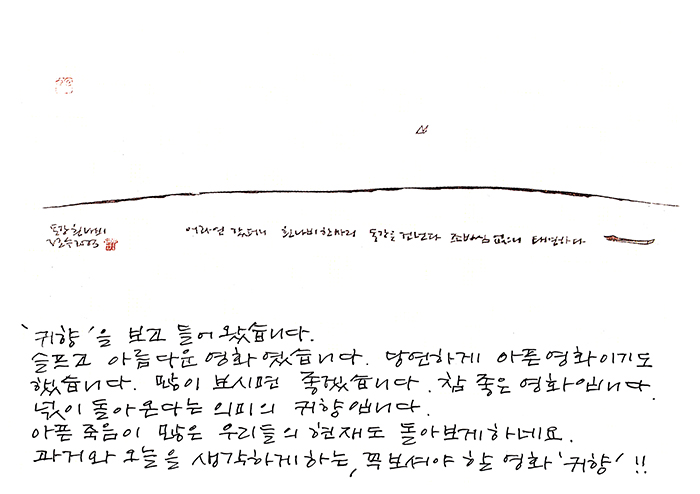 동강 흰나비
어라연 갔더니 흰나비 한마리 동강을 건넌다 조바심 없으니 태연하다.
'귀향'을 보고 들어왔습니다.
슬프고 아름다운 영화였습니다. 당연하게 아픈영화이기도
했습니다. 많이 보시면 좋겠습니다. 참 좋은 영화입니다.
넋이 돌아온다는 의미의 귀향입니다.
아픈 죽음이 많은 우리들의 현재도 돌아보게하네요.
과거와 오늘을 생각하게하는, 꼭 보셔야 할 영화 '귀향' !!